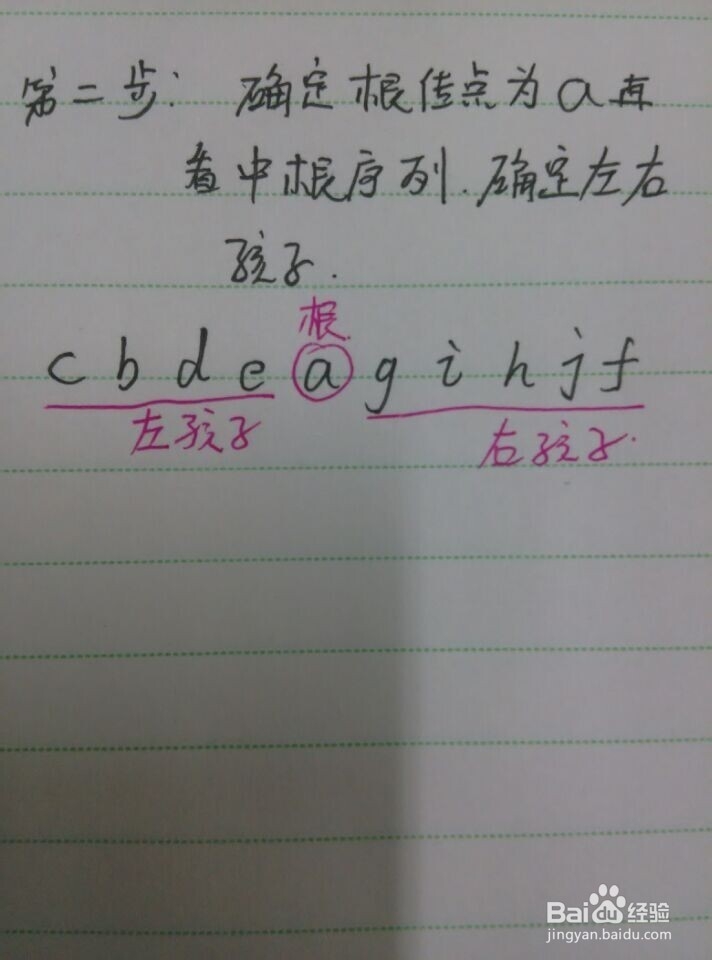 第二步: 确定根结点为a再
看中根序列.确定左右
孩子.
根
c b d e a g i h j f
左孩子 右孩子.
Baidu经验
jingyan.baidu.com